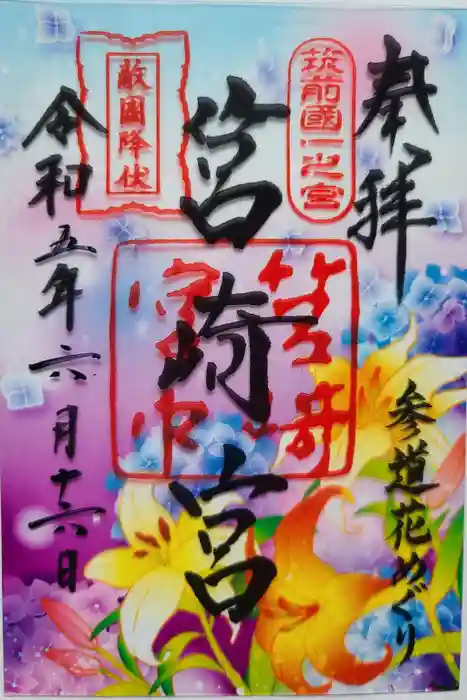 奉拝
参道花めぐり
筑前國一之宮
筥崎宮
敵國降伏
令和五年六月十六日